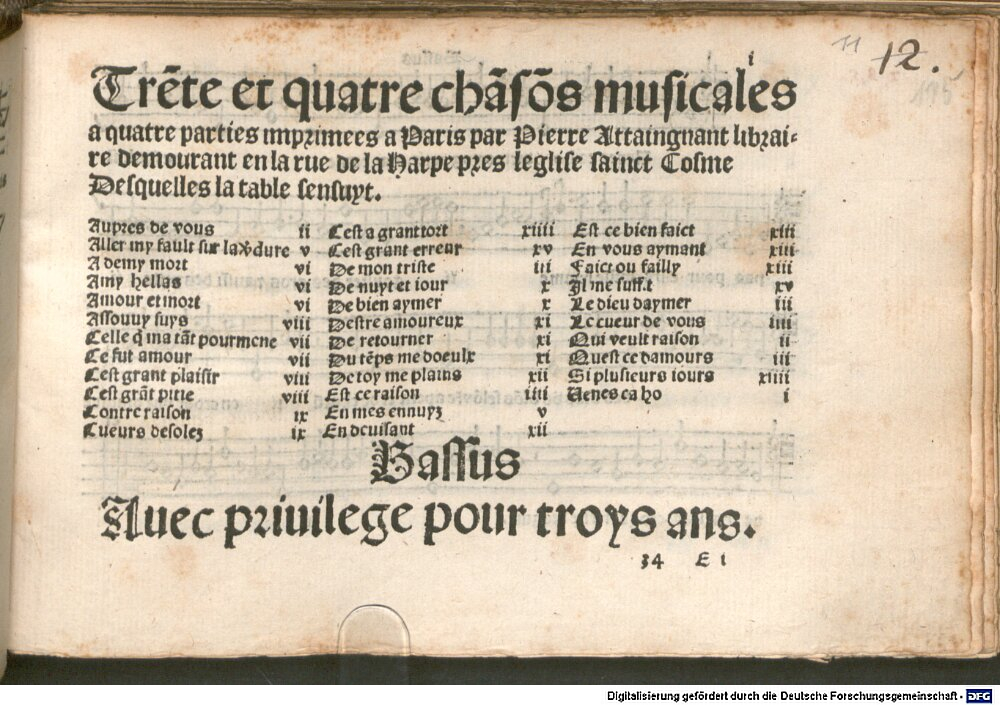 i
11 12.
195
Trēte et quatre chāsōs musicales
a quatre parties imprimees a Paris par Pierre Attaingnant librai-
re demourant en la rue de la Harpe pres leglise sainct Cosme
Desquelles la table sensuyt.
Aupres de vous ii
Aller my fault sur la v̾dure v
A demy mort vi
Amy hellas vi
Amour et mort vi
Assouuy suys viii
Celle q̄ ma tāt pourmene vii
Ce fut amour vii
Cest grant plaisir viii
Cest grāt pitie viii
Contre raison ix
Cueurs desolez ix
Cest a grant tort xiiii
Cest grant erreur xv
De mon triste iii
De nuyt et iour x
De bien aymer x
Destre amoureux xi
De retourner xi
Du tēps me doeulx xi
De toy me plains xii
Est ce raison iiii
En mes ennuyz v
En deuisant xii
Est ce bien faict xiii
En vous aymant xiii
Faict ou failly xiii
Il me suffit xv
Le dieu daymer iii
Le cueur de vous iiii
Qui veult raison ii
Quest ce damours iii
Si plusieurs iours xiiii
Uenes ca ho i
Bassus
Auec priuilege pour troys ans.
34 E i
Digitalisierung gefördert durch die Deutsche Forschungsgemeinschaft - DFG